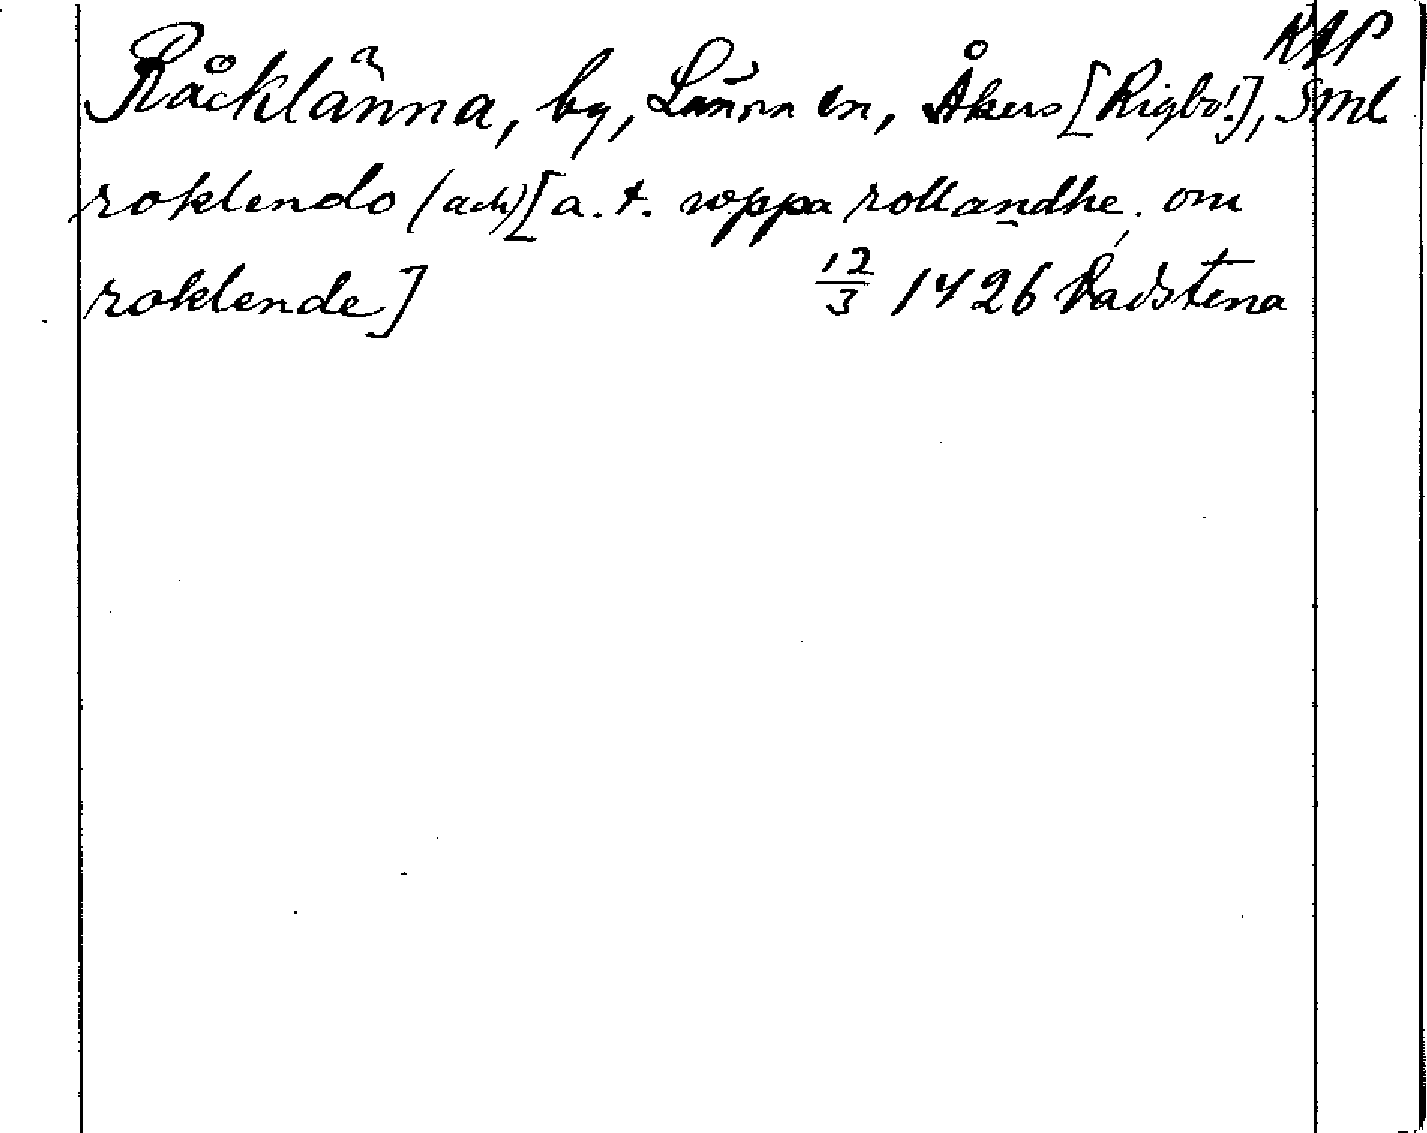 RAP
Råcklänna, by, Länna sn, Åkers [Rigbo!], Sml
roklendo (ack) [a. t. soppa rollandhe. om
roklende] 12/3 1426 Vadstena